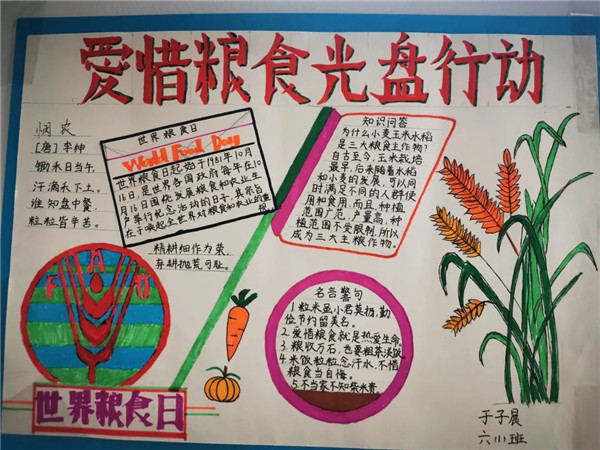 爱惜粮食光盘行动
悯农
[唐] 李绅
锄禾日当午,
汗滴禾下土。
谁知盘中餐,
粒粒皆辛苦。
世界粮食日
World Food Day
世界粮食日起始于1981年10月
16日,是世界各国政府每年在10
月16日围绕发展粮食和农业生
产举行纪念活动的日子,其宗旨
在于唤起全世界对粮食和农业的重视
精耕细作为荣,
弃耕抛荒可耻。
知识问答
为什么小麦玉米水稻
是三大粮食主作物?
自古至今,玉米栽培
最早,后来随着水稻
和小麦的发展,可以同
时满足不同的人群使
用和食用,而且,种植
范围广范,产量高,种
植范围不受限制,所以
成为三大主粮作物。
名言警句
1.粒米虽小君莫扔,勤
俭节约留美名。
2.爱惜粮食就是热爱生命。
3.粮收万石,也要粗茶淡饭
4.米饭粒粒念汗水,不惜
粮食当自悔。
5.不当家不知柴米贵。
FAO
世界粮食日
于子晨
六小班